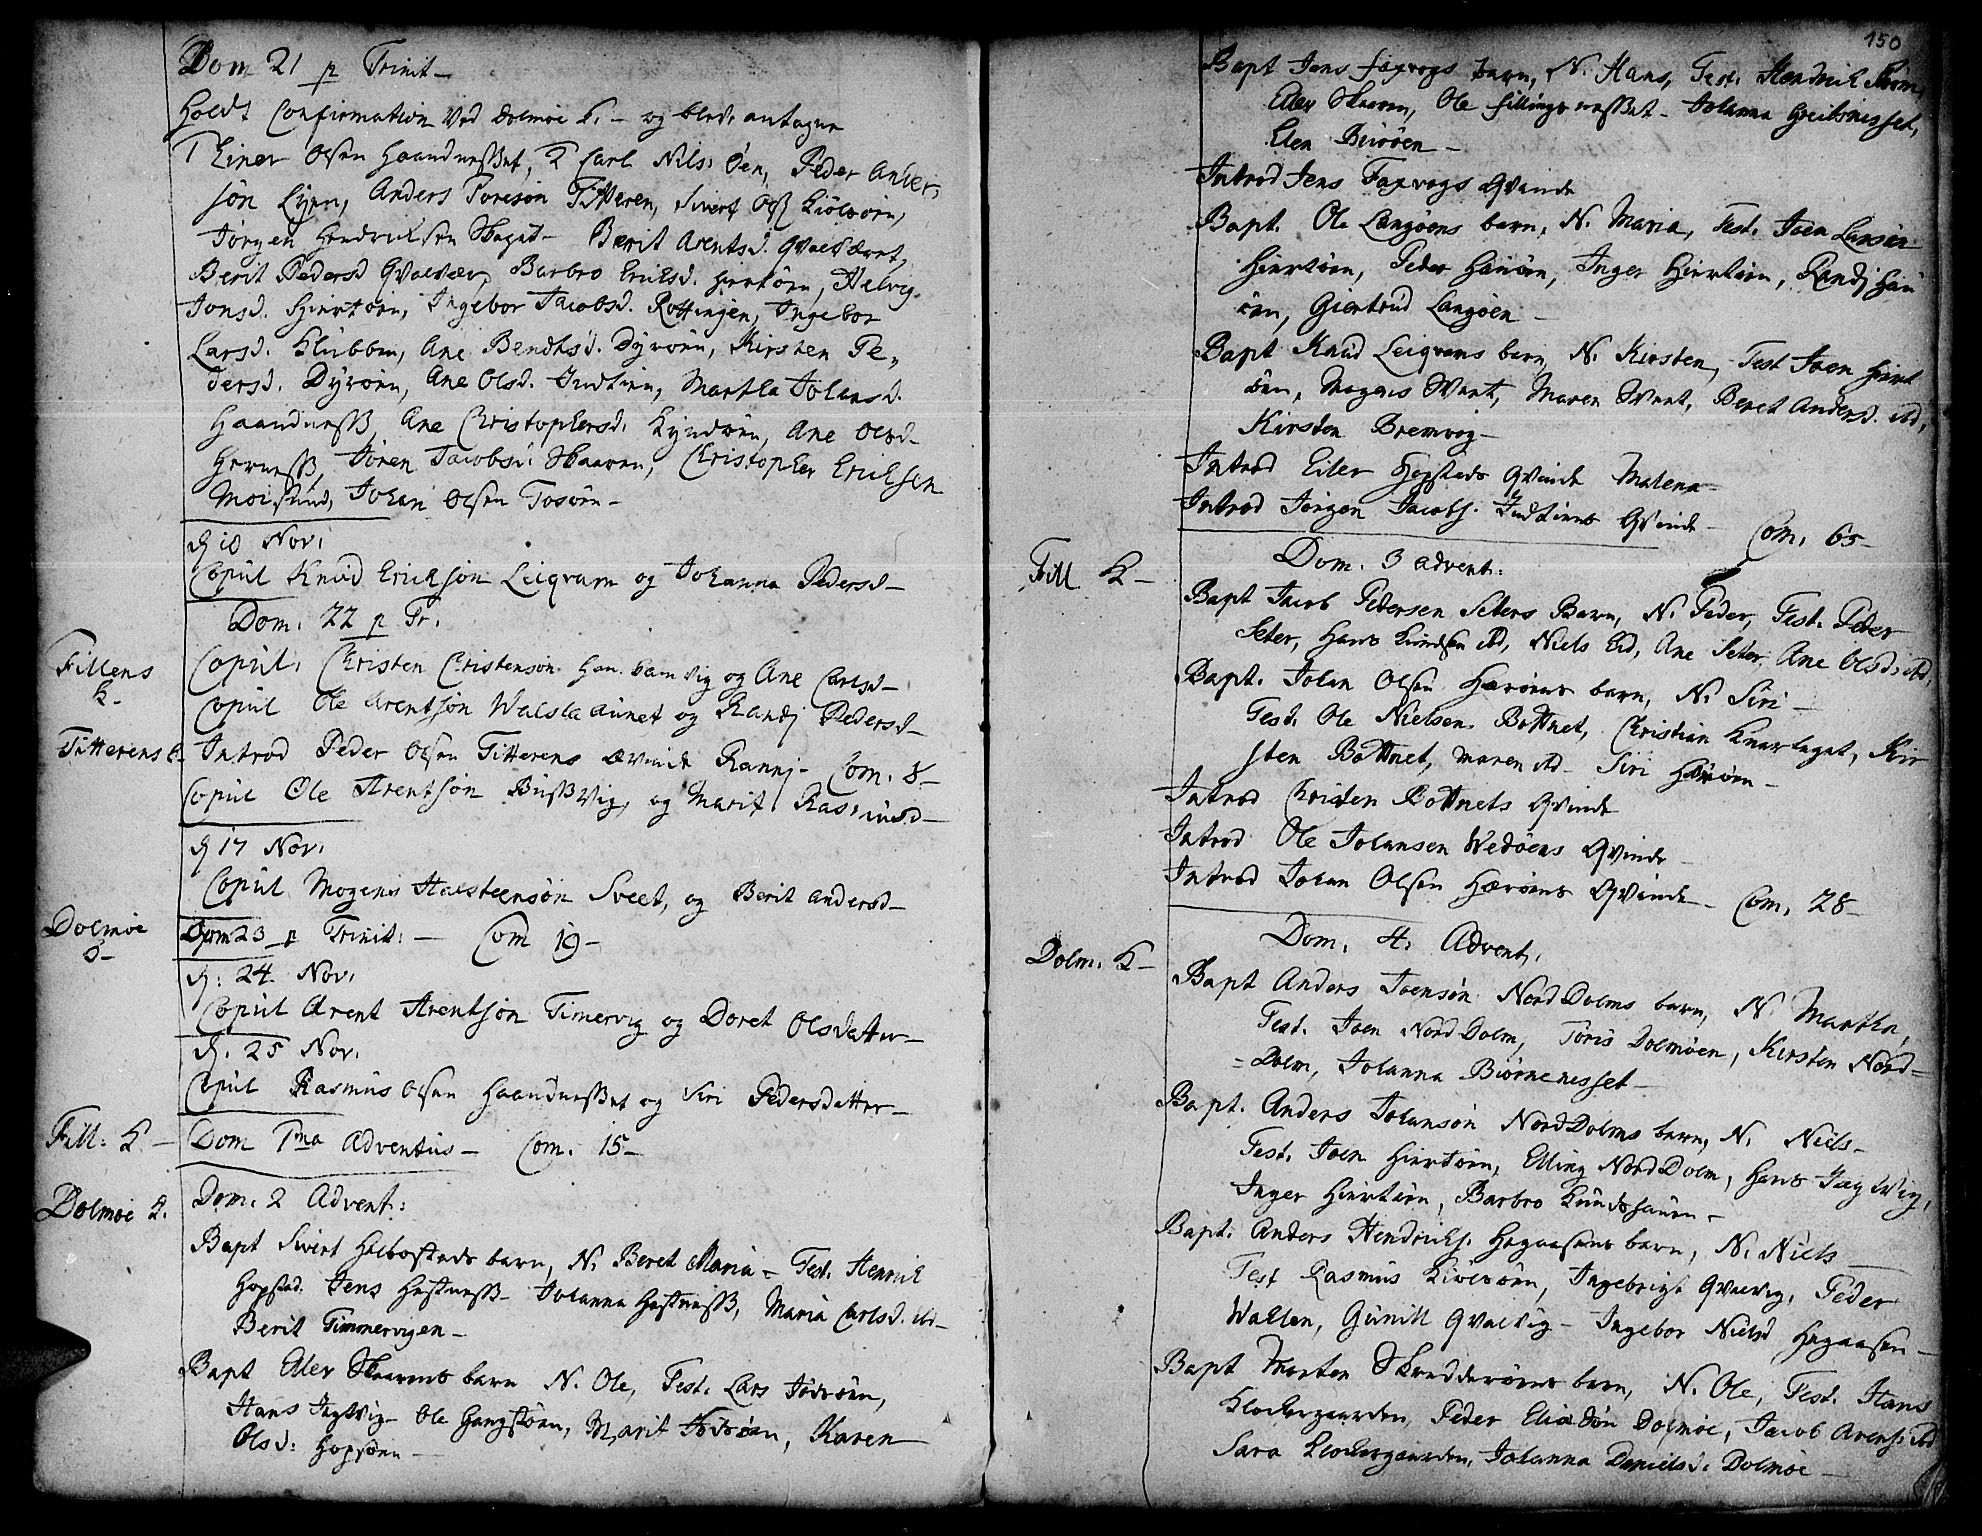 Dom 21 p Trinit –
holdt Confirmation ved Dolmøe K. – og blev antagne
1 Einer Olsen Haandnesset, 2 Carl Nils: Øen, Peder Anders
søn Lynn, Anders Toresøn Titteren, Sivert Olss
Jørgen Hendrichsen Skaget – Berit Arentsd. Qvalværet,
Berit Pedersd Qvalvær, Barbro Ericksd. Hiertøen, Helvig
Jonsd. Hiertøen, Ingebor Jacobsd. Rottingen, Ingebor
Larsd. Klubben, Ane Bendtsd. Dyrøen, Kirsten Pe„
dersd. Dyrøen, Ane Olsd. Indtien, Martha Johansd.
Haandness, Ane Christophersd. Kyndøen, Ane Olsd –
Jøren Jacobsd: Skaaren, Christopher Ericksen
Moisund, Johan Olsen Tosøen –
d 10 Nov.
Copul Knud Ericksøn Leiqvam og Johanna Pedersd –
Dom. 22 p Tr.
Fillens
K –
Copul. Christen Christensøn Hambaravig og Ane Carlsd –
Copul Ole Arentsøn Walslaaunet og Randj Pedersd –
Titterens K –
Introd Peder Olsen Titterens Qvinde Rannj – Com. 8 –
Copul Ole Arentsøn Bussvig, og Marit Rasmusd –
d 17 Nov.
Copul Mogens Halsteensøn Sveet, og Berit Andersd –
Dolmøe
K –
Dom 23 p Trinit: – Com 19 –
d: 24 Nov.
Copul Arent Arentsøn Timervig og Doret Olsdatter –
d. 25 Nov.
Copul Rasmus Olsen Haandnesset og Siri Pedersdatter –
Fill: K –
Dom 1ma Adventus – Com. 15 –
Dolmøe K.
Dom. 2 Advent:
Bapt Sivert Helbostads barn, N. Beret Maria – Test. Henrik
Hopstad. Jens Hestness – Johanna Hestness, Maria Carlsd. ibd –
Berit Timmervigen –
Bapt Eler Skaarens barn N. Ole, Test. Lars Jøsøen,
Hans Jegtvig – Ole Gangstøen, Marit Jøsøen, Karen
Olsd: Hopsøen –
150
Bapt Jens Faxvogs barn, N. Hans, Test. Hendrick
Eler Skaaren, Ole Fillingsnesset – Johanna Greibnesset,
Elen Buøen –
Introd Jens Faxvogs Qvinde
Bapt. Ole Langøens barn, N. Maria, Test. Joen Larsen
Hiertøen, Peder Hauøen, Inger Hiertøen, Randj Hau
øen, Giertrud Langøen –
Bapt Knud Leiqvams barn, N. Kirsten, Test Joen Hiert
øen, Mogens Sveet, Maren Sveet, Beret Andersd. ibd,
Kirsten Bremvog –
Introd Eiler Hopstads Qvinde Malena –
Introd Jørgen Jacobs. Indtiens Qvinde – Com. 65 –
Fill K –
Dom. 3 Advent:
Bapt Jacob Pedersen Seters Barn, N. Peder, Test. Peder
Seter, Hans Knudsen ibd, Niels Eid, Ane Seter, Ane Olsd: ibd,
Bapt. Johan Olsen Herøens barn, N. Siri –
Test. Ole Nielsen Bottnet, Christian Knarlaget, Kir
sten Bottnet, Maren ibd – Siri Herøen –
Introd Christen Bottnets Qvinde
Introd Ole Johansen Wedøens Qvinde –
Introd Johan Olsen Herøens Qvinde – Com. 28 –
Dolm. K –
Dom. 4. Advent.
Bapt Anders Joensøn NordDolms barn, N. Martha,
Test. Joen NordDolm, Toris Dolmøen, Kirsten Nord=
=Dolm, Johanna Biørnenesset –
Bapt. Anders Johansøn NordDolms barn, N. Niels –
Test. Joen Hiertøen, Elling NordDolm, Hans Jægtvig,
Inger Hiertøen, Barbro Knudshauen –
Bapt: Anders Hendrichs. Hegaasens barn, N. Niels –
Test Rasmus Kiølsøen, Ingebrigt Qvalvig, Peder
Wallen, Gunill Qvalvig – Ingebor Nielsd Hegaasen –
Bapt Morten Skredderøens barn, N. Ole, Test. Hans
Klockergaarden, Peder Eliasøn Dolmøe, Jacob Arens. ibd
Sara Klockergaarden, Johanna Danielsd. Dolmøe –